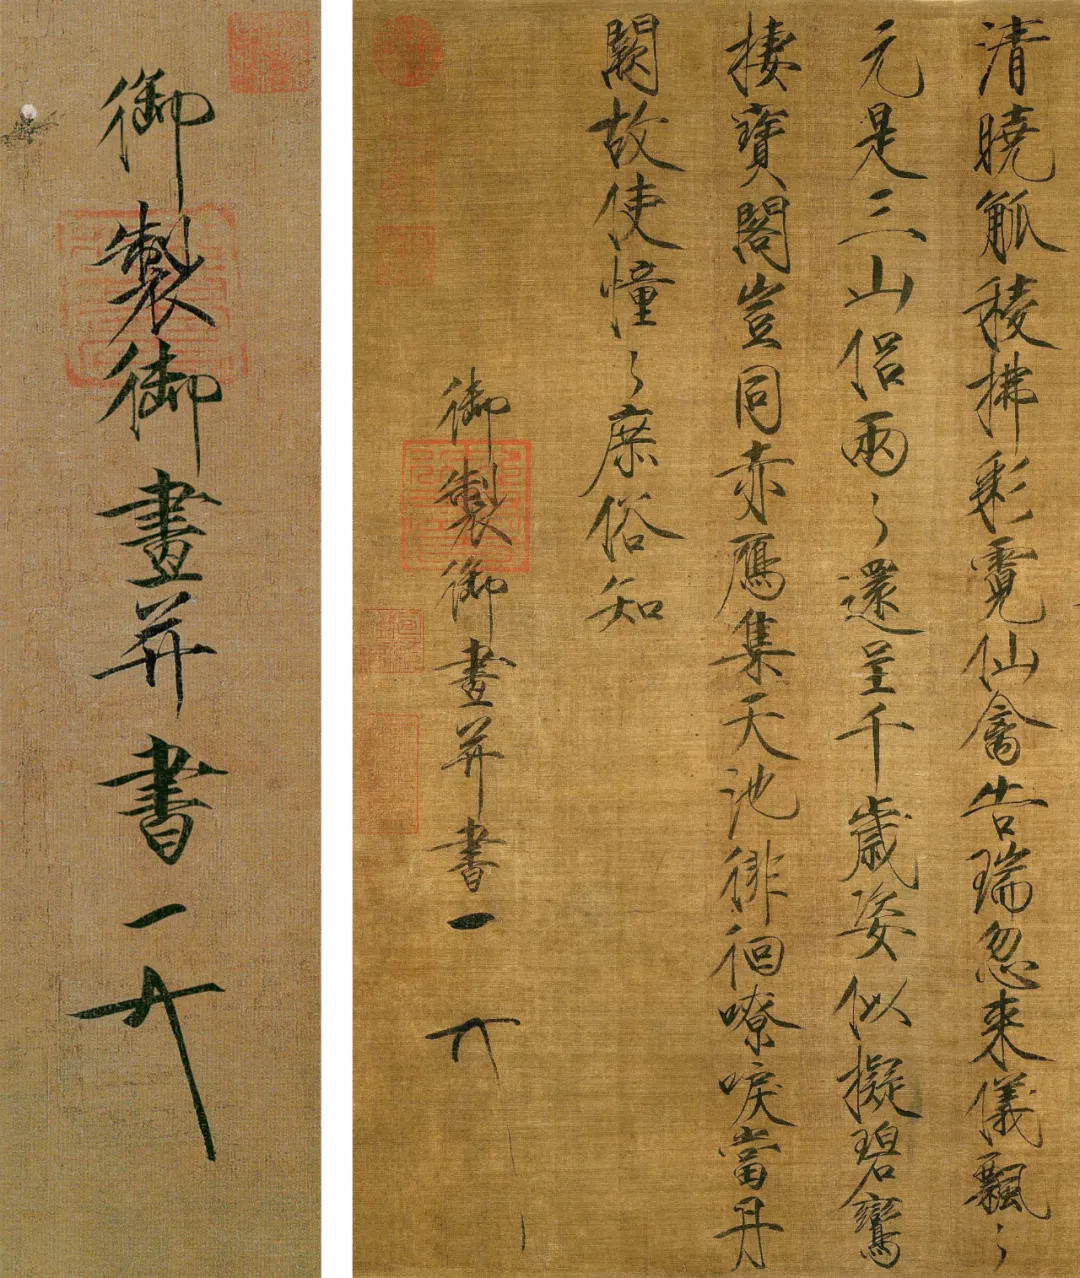 清曉觚稜拂彩霓仙禽告瑞忽来儀飄々
元是三山侶兩々還呈千歲姿似擬碧鸞
棲寶閣豈同赤鴈集天池徘徊嘹唳當丹
闕故使憧々庶俗知
御製御畫并書
御製御畫并書